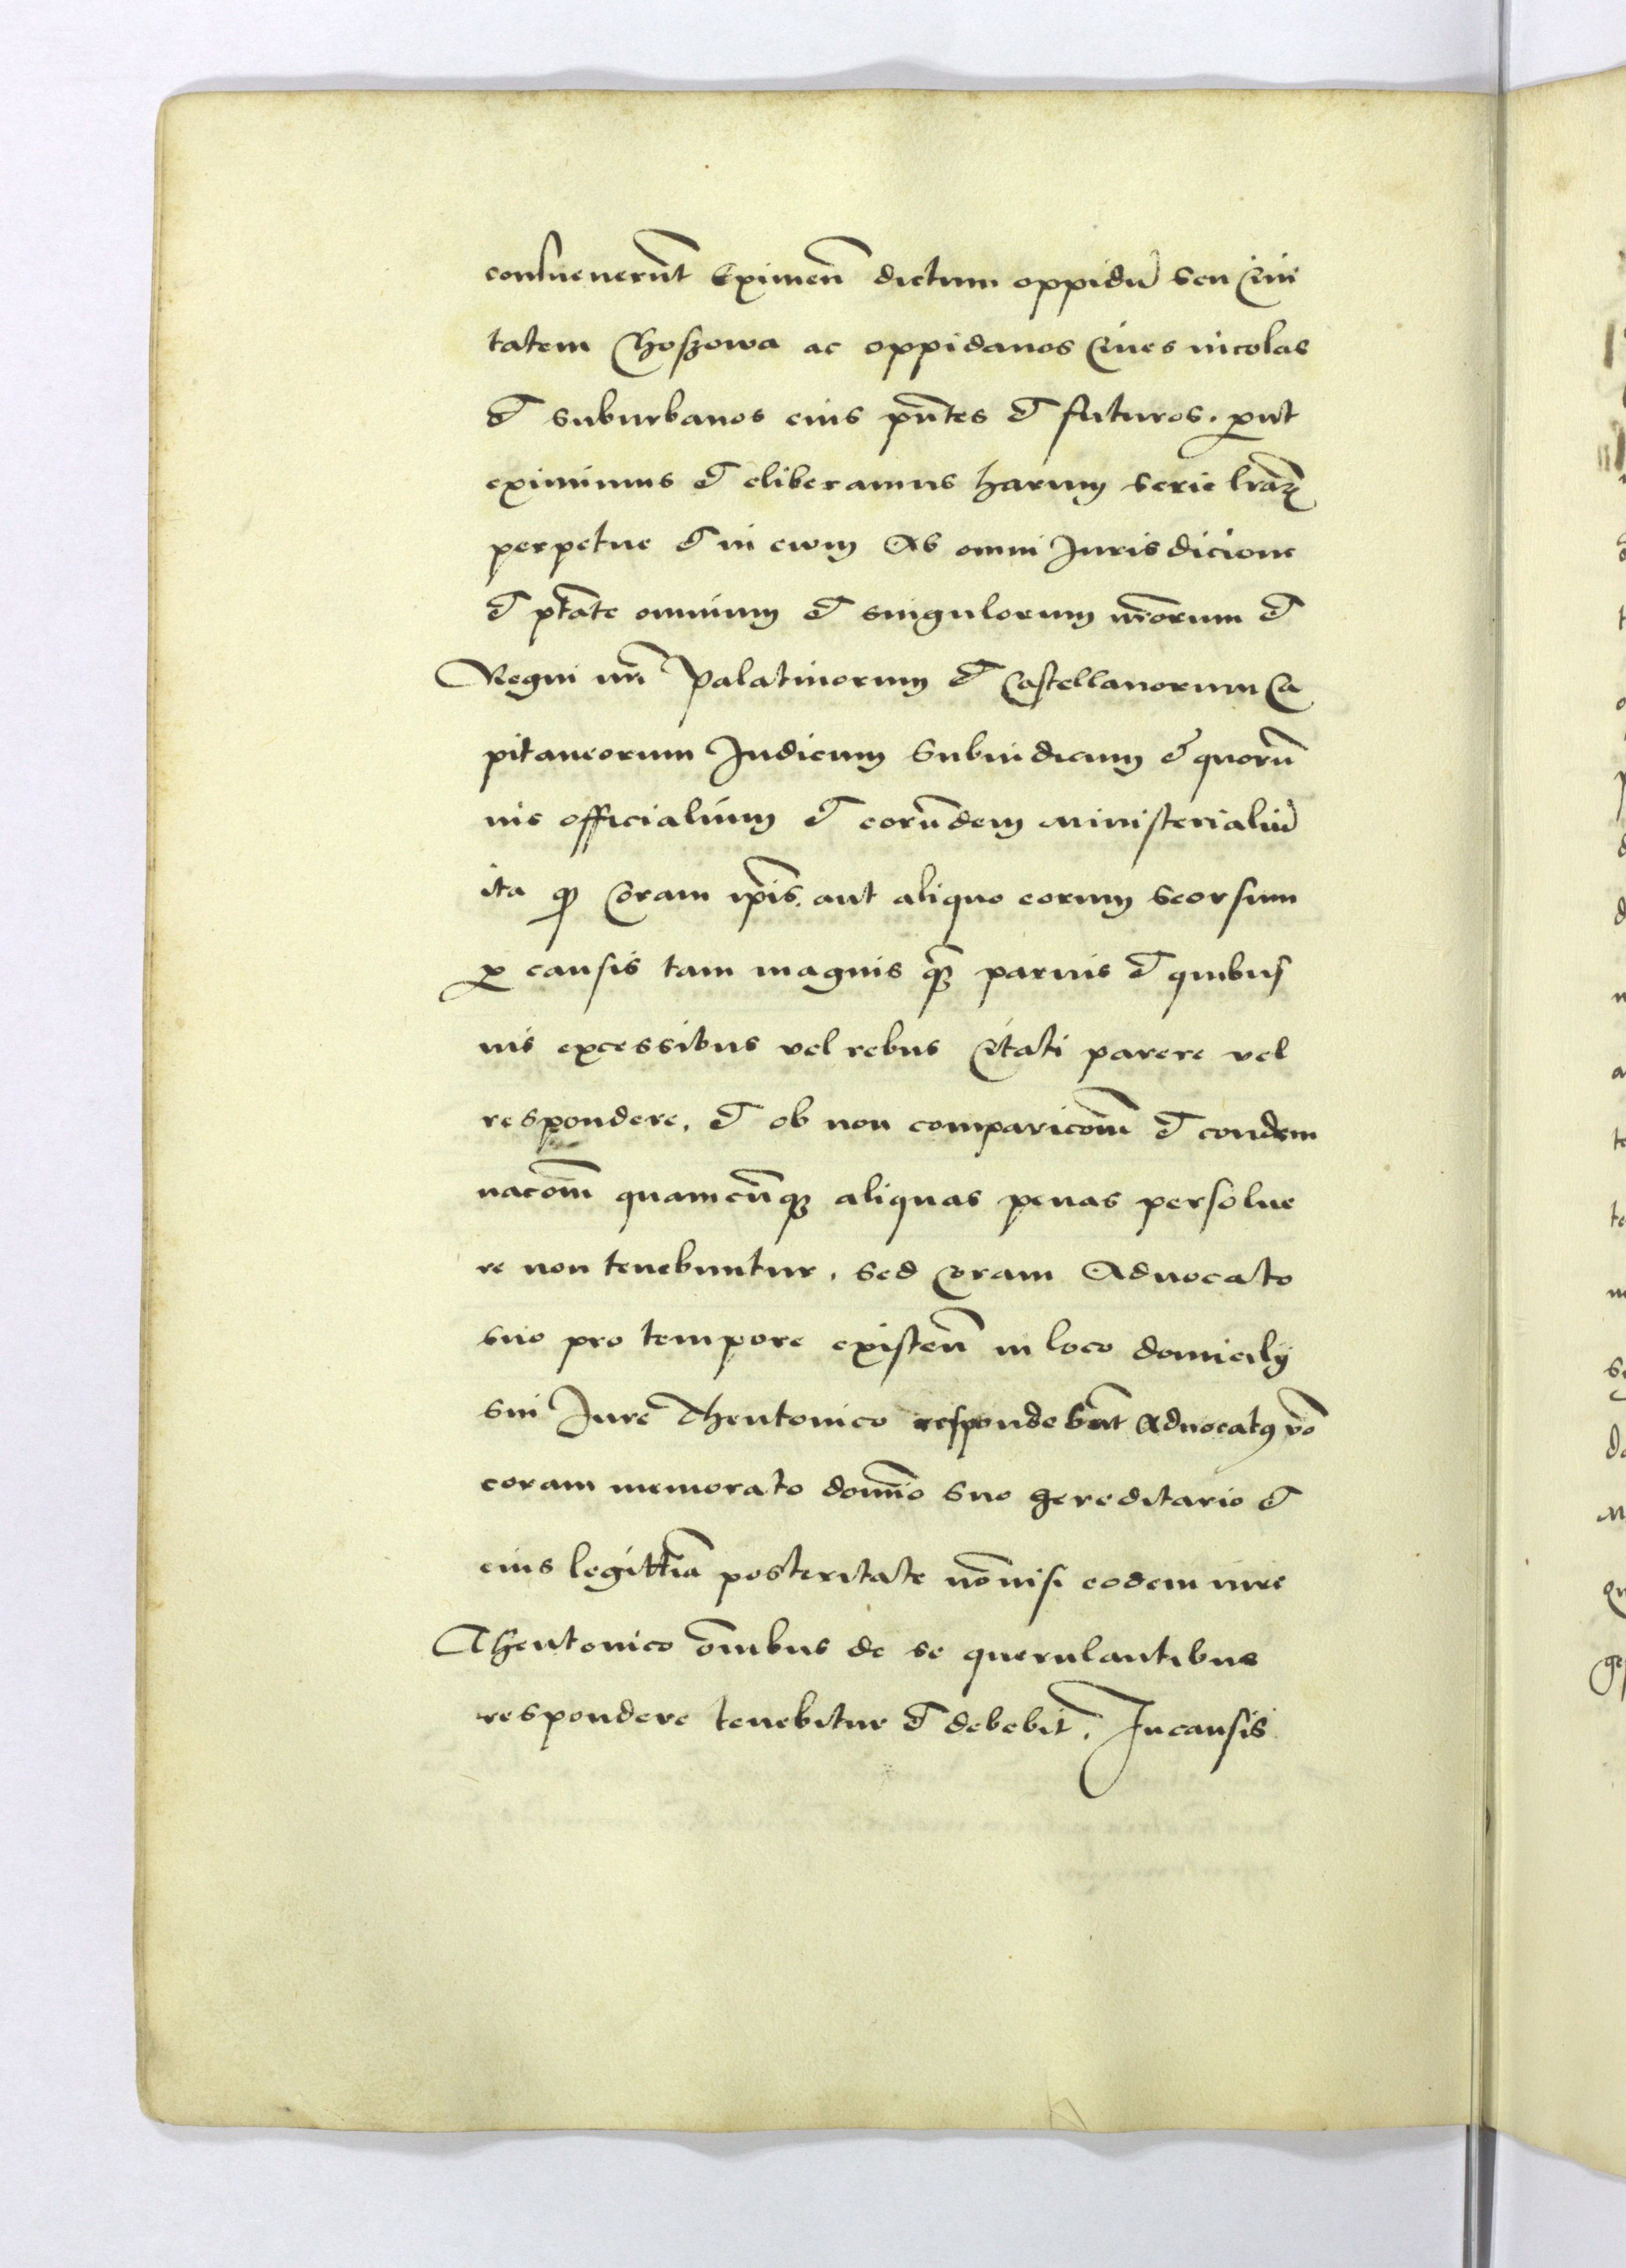 conuenerūt Eximeñ dictum oppidū seu Ciui
tatem Choszowa ac oppidanos Ciues incolas
et suburbanos eius pn̄tes et futuros. put
eximimus et eliberamus harum serie lrāꝝ
perpetue et in ewm Ab omni Jurisdicione
et ptāte omnium et singulorum nr̄orum et
Regni nr̄i Palatinorum et Castellanorum Ca
pitaneorum Judicum Subiudicum et quorū
uis officialium et eorūdem ministerialiū
ita ꝙ Coram ip̄is. aut aliquo eorum seorsum
ꝓ causis tam magnis qꝫ paruis et quibus
uis excessibus vel rebus Citati parere vel
respondere. et ob non comparicōm̄ et condem
nacōm̄ quamcūqꝫ aliquas penas persolue
re non tenebuntur. sed Coram Aduocato
suo pro tempore existeñ in loco domicilÿ
sui Jure Theutonico respondebūt Aduocatꝰ vō
coram memorato domīo suo hereditario et
eius legittīa posteritate nōnisi eodem iure
Theutonico om̄ibus de se querulantibus
respondere tenebitur et debebit̄. In causis